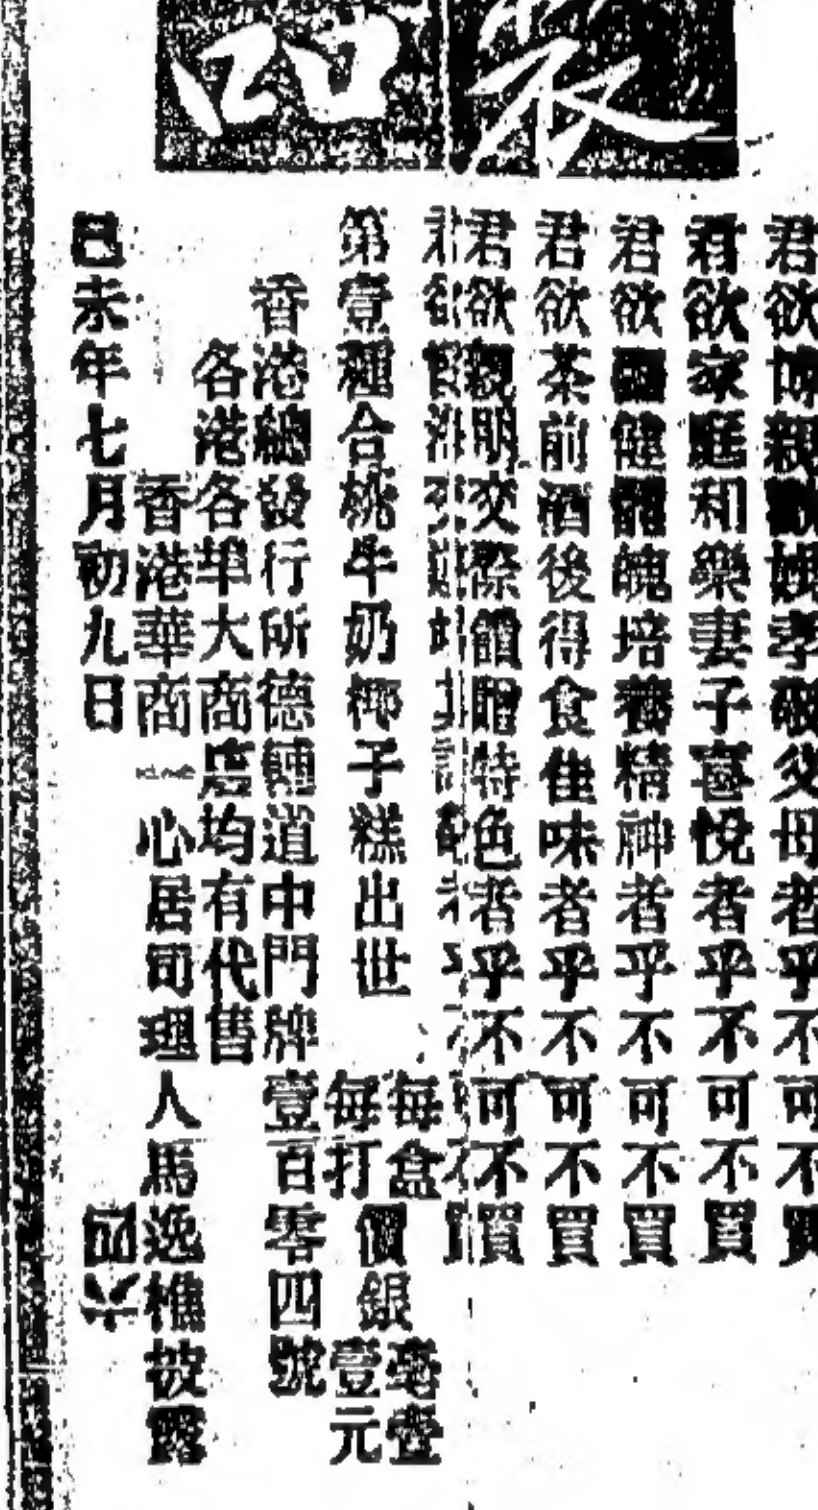 品
君欲博親歡娛孝敬父母者乎不可不買
君欲家庭和樂妻子喜悅者乎不可不買
君欲國健體魄培養精神者乎不可不買
君欲茶前酒後得食佳味者乎不可不買
君欲親朋交際餽贈特色者乎不可不買
君欲
第壹種合桃牛奶椰子糕出世
每盒價銀毫壹
每打價銀壹元
香港總發行所德輔道中門牌壹百零四號
各港各埠大商店均有代售
香港華商一心居司理人馬逸樵披露
己未年七月初九日
四六